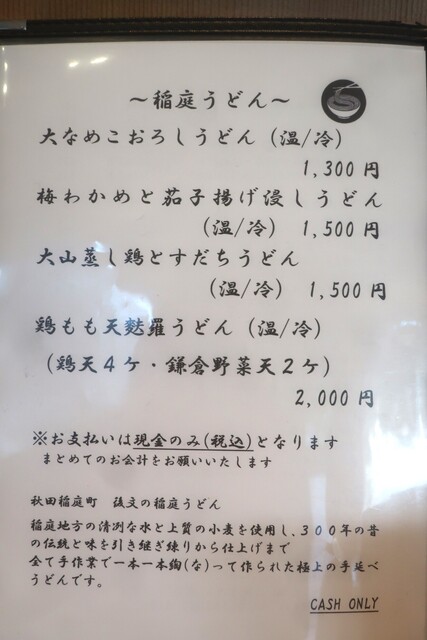 ～稲庭うどん～
大なめこおろしうどん(温/冷)
1,300円
梅わかめと茄子揚げ浸しうどん
(温/冷) 1,500円
大山蒸し鶏とすだちうどん
(温/冷) 1,500円
鶏もも天麩羅うどん(温/冷)
(鶏天４ケ・鎌倉野菜天２ケ)
2,000円
※お支払いは現金のみ(税込)となります
まとめてのお会計をお願いいたします
秋田稲庭町 後文の稲庭うどん
稲庭地方の清冽な水と上質の小麦を使用し、３００年の昔
の伝統と味を引き継ぎ練りから仕上げまで
全て手作業で一本一本綯(な)って作られた極上の手延べ
うどんです。
CASH ONLY